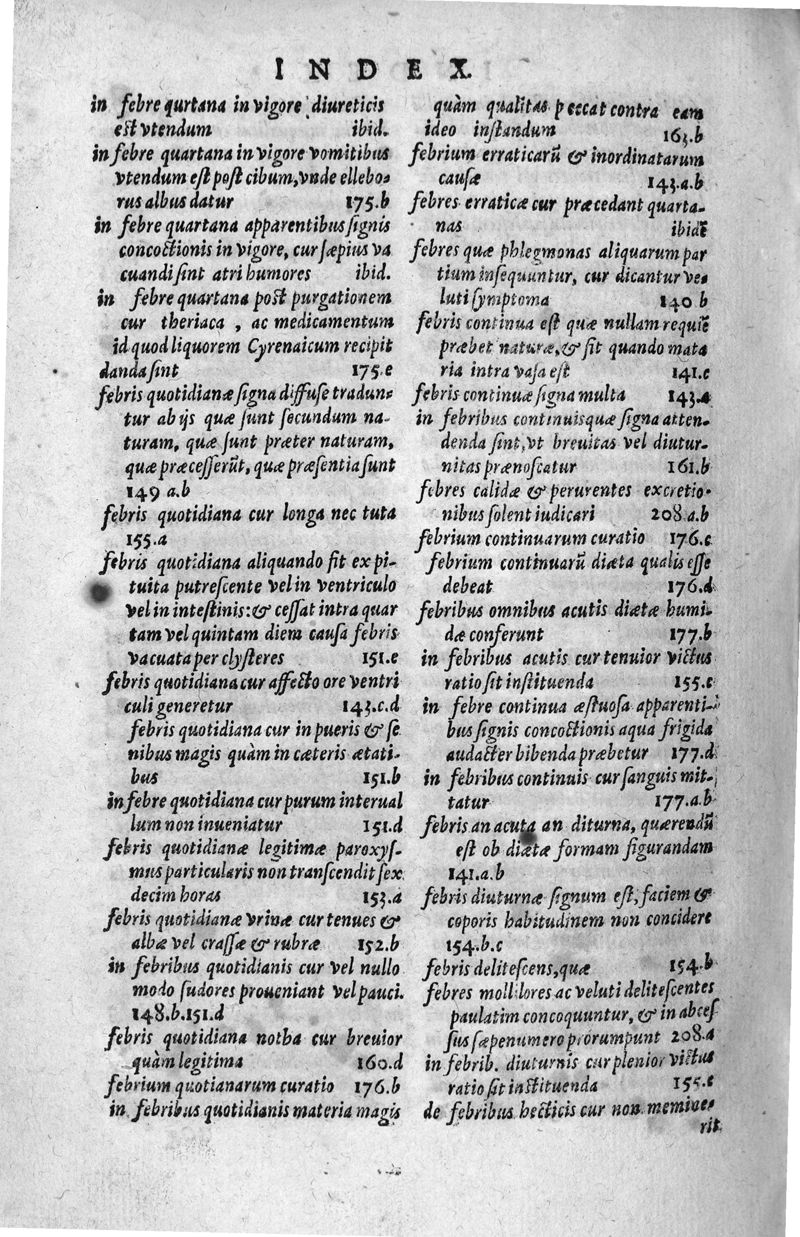 INDEX.
in febre qurtana in vigore diureticis
est vtendum ibid.
in febre quartana in vigore vomitibus
vtendum est post cibum, vnde ellebo-
rus albus datur 175.b
in febre quartana apparentibus signis
concoctionis in vigore, cur sæpius va
cuandi sint atri humores ibid.
in febre quartana post purgationem
cur theriaca, ac medicamentum
id quod liquorem Cyrenaicum recipit
danda sint 175.e
febris quotidianæ signa diffuse tradun-
tur ab ijs quæ sunt secundum na-
turam, quæ sunt præter naturam,
quæ præcesserũt, quæ præsentia sunt
149 a.b
febris quotidiana cur longa nec tuta
155.a
febris quotidiana aliquando fit ex pi-
tuita putrescente vel in ventriculo
vel in intestinis: & cessat intra quar
tam vel quintam diem causa febris
vacuata per clysteres 151.e
febris quotidiana cur affecto ore ventri
culi generetur 143.c.d
febris quotidiana cur in pueris & se
nibus magis quàm in cæteris ætati-
bus 151.b
in febre quotidiana cur purum interual
lum non inueniatur 151.d
febris quotidianæ legitimæ paroxys-
mus particularis non transcendit sex
decim horas 153.a
febris quotidianæ vrinæ cur tenues &
albæ vel crassæ & rubræ 152.b
in febribus quotidianis cur vel nullo
modo sudores proueniant vel pauci.
148.b.151.d
febris quotidiana notha cur breuior
quàm legitima 160.d
febrium quotianarum curatio 176.b
in febribus quotidianis materia magis
quàm qualitas peccat contra eam
ideo instandum 163.b
febrium erraticarũ & inordinatarum
causæ 143.a.b
febres erraticæ cur præcedant quarta-
nas ibidẽ
febres quæ phlegmonas aliquarum par
tium insequuntur, cur dicantur ve-
luti symptoma 140 b
febris continua est quæ nullam requiẽ
præbet naturæ, & fit quando mata
ria intra vasa est 141.e
febris continuæ signa multa 143.a
in febribus continuis quæ signa atten-
denda sint, vt breuitas vel diutur-
nitas prænoscatur 161.b
febres calidæ & perurentes excretio-
nibus solent iudicari 208.a.b
febrium continuarum curatio 176.c
febrium continuarũ diæta qualis esse
debeat 176.d
febribus omnibus acutis diætæ humi-
dæ conferunt 177.b
in febribus acutis cur tenuior victus
ratio sit instituenda 155.e
in febre continua æstuosa apparenti-
bus signis concoctionis aqua frigida
audacter bibenda præbetur 177.d
in febribus continuis cur sanguis mit-
tatur 177.a.b
febris an acuta an diturna, quærendũ
est ob diætæ formam figurandam
141.a.b
febris diuturnæ signum est, faciem &
coporis habitudinem non concidere
154.b.c
febris delitescens, quæ 154.b
febres molliores ac veluti delitescentes
paulatim concoquuntur, & in absces
sus sæpenumero prorumpunt 208.a
in febrib. diuturnis cur plenior victus
ratio sit instituenda 155.e
de febribus hecticis cur non memine-
rit